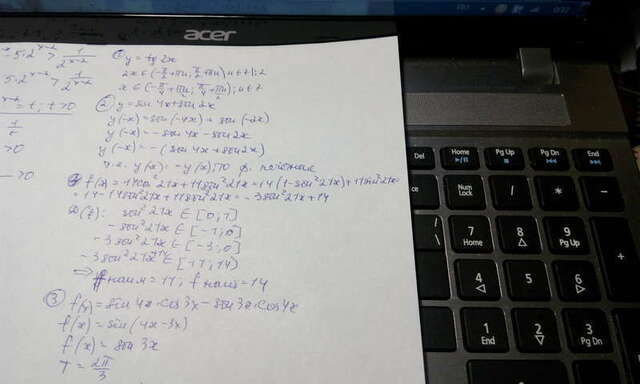 acer
-5·2^{x-2} > 1/2^{x-2}
5·2^{x-2} > 1/2^{x-2}
= t; t>0
>0
>0
① y = tg 2x
2x ∈ (-π/2 + πn; π/2 + πn), n ∈ Z
x ∈ (-π/4 + πn/2; π/4 + πn/2); n ∈ Z
② y = sin 4x + sin 2x
y(-x) = sin(-4x) + sin(-2x)
y(-x) = -sin 4x - sin 2x
y(-x) = -(sin 4x + sin 2x)
т.к. y(x) = -y(x), то ф. нечётная
f(x) = 14cos²21x + 11sin²21x = 14(1-sin²21x) + 11sin²21x =
= 14 - 14sin²21x + 11sin²21x = -3sin²21x + 14
sin²21x ∈ [0; 1]
-sin²21x ∈ [-1; 0]
-3sin²21x ∈ [-3; 0]
-3sin²21x+14 ∈ [11; 14]
⇒ f наим = 11; f наиб = 14
③ f(x) = sin 4x · cos 3x - sin 3x · cos 4x
f(x) = sin(4x-3x)
f(x) = sin 3x
T = 2π/3
Del
Home
Pg Up
Pg Dn
End
Num Lock
/
*
-
7 Home
8
9 Pg Up
+
4
5
6
1 End
2
3 Pg Dn